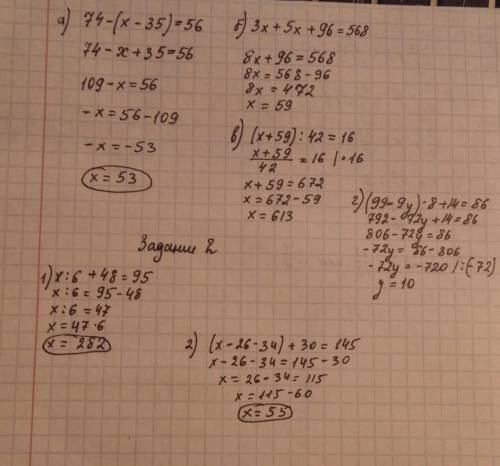 а) 74-(x-35)=56
74-x+35=56
109-x=56
-x=56-109
-x=-53
x=53
б) 3x+5x+96=568
8x+96=568
8x=568-96
8x=472
x=59
в) (x+59):42=16
x+59
42
=16 |·16
x+59=672
x=672-59
x=613
г) (99-9y)·8+14=86
792-72y+14=86
806-72y=86
-72y=86-806
-72y=-720 |:(-72)
y=10
Задание 2
1) x:6+48=95
x:6=95-48
x:6=47
x=47·6
x=282
2) (x-26-34)+30=145
x-26-34=145-30
x=26-34=115
x=115-60
x=55